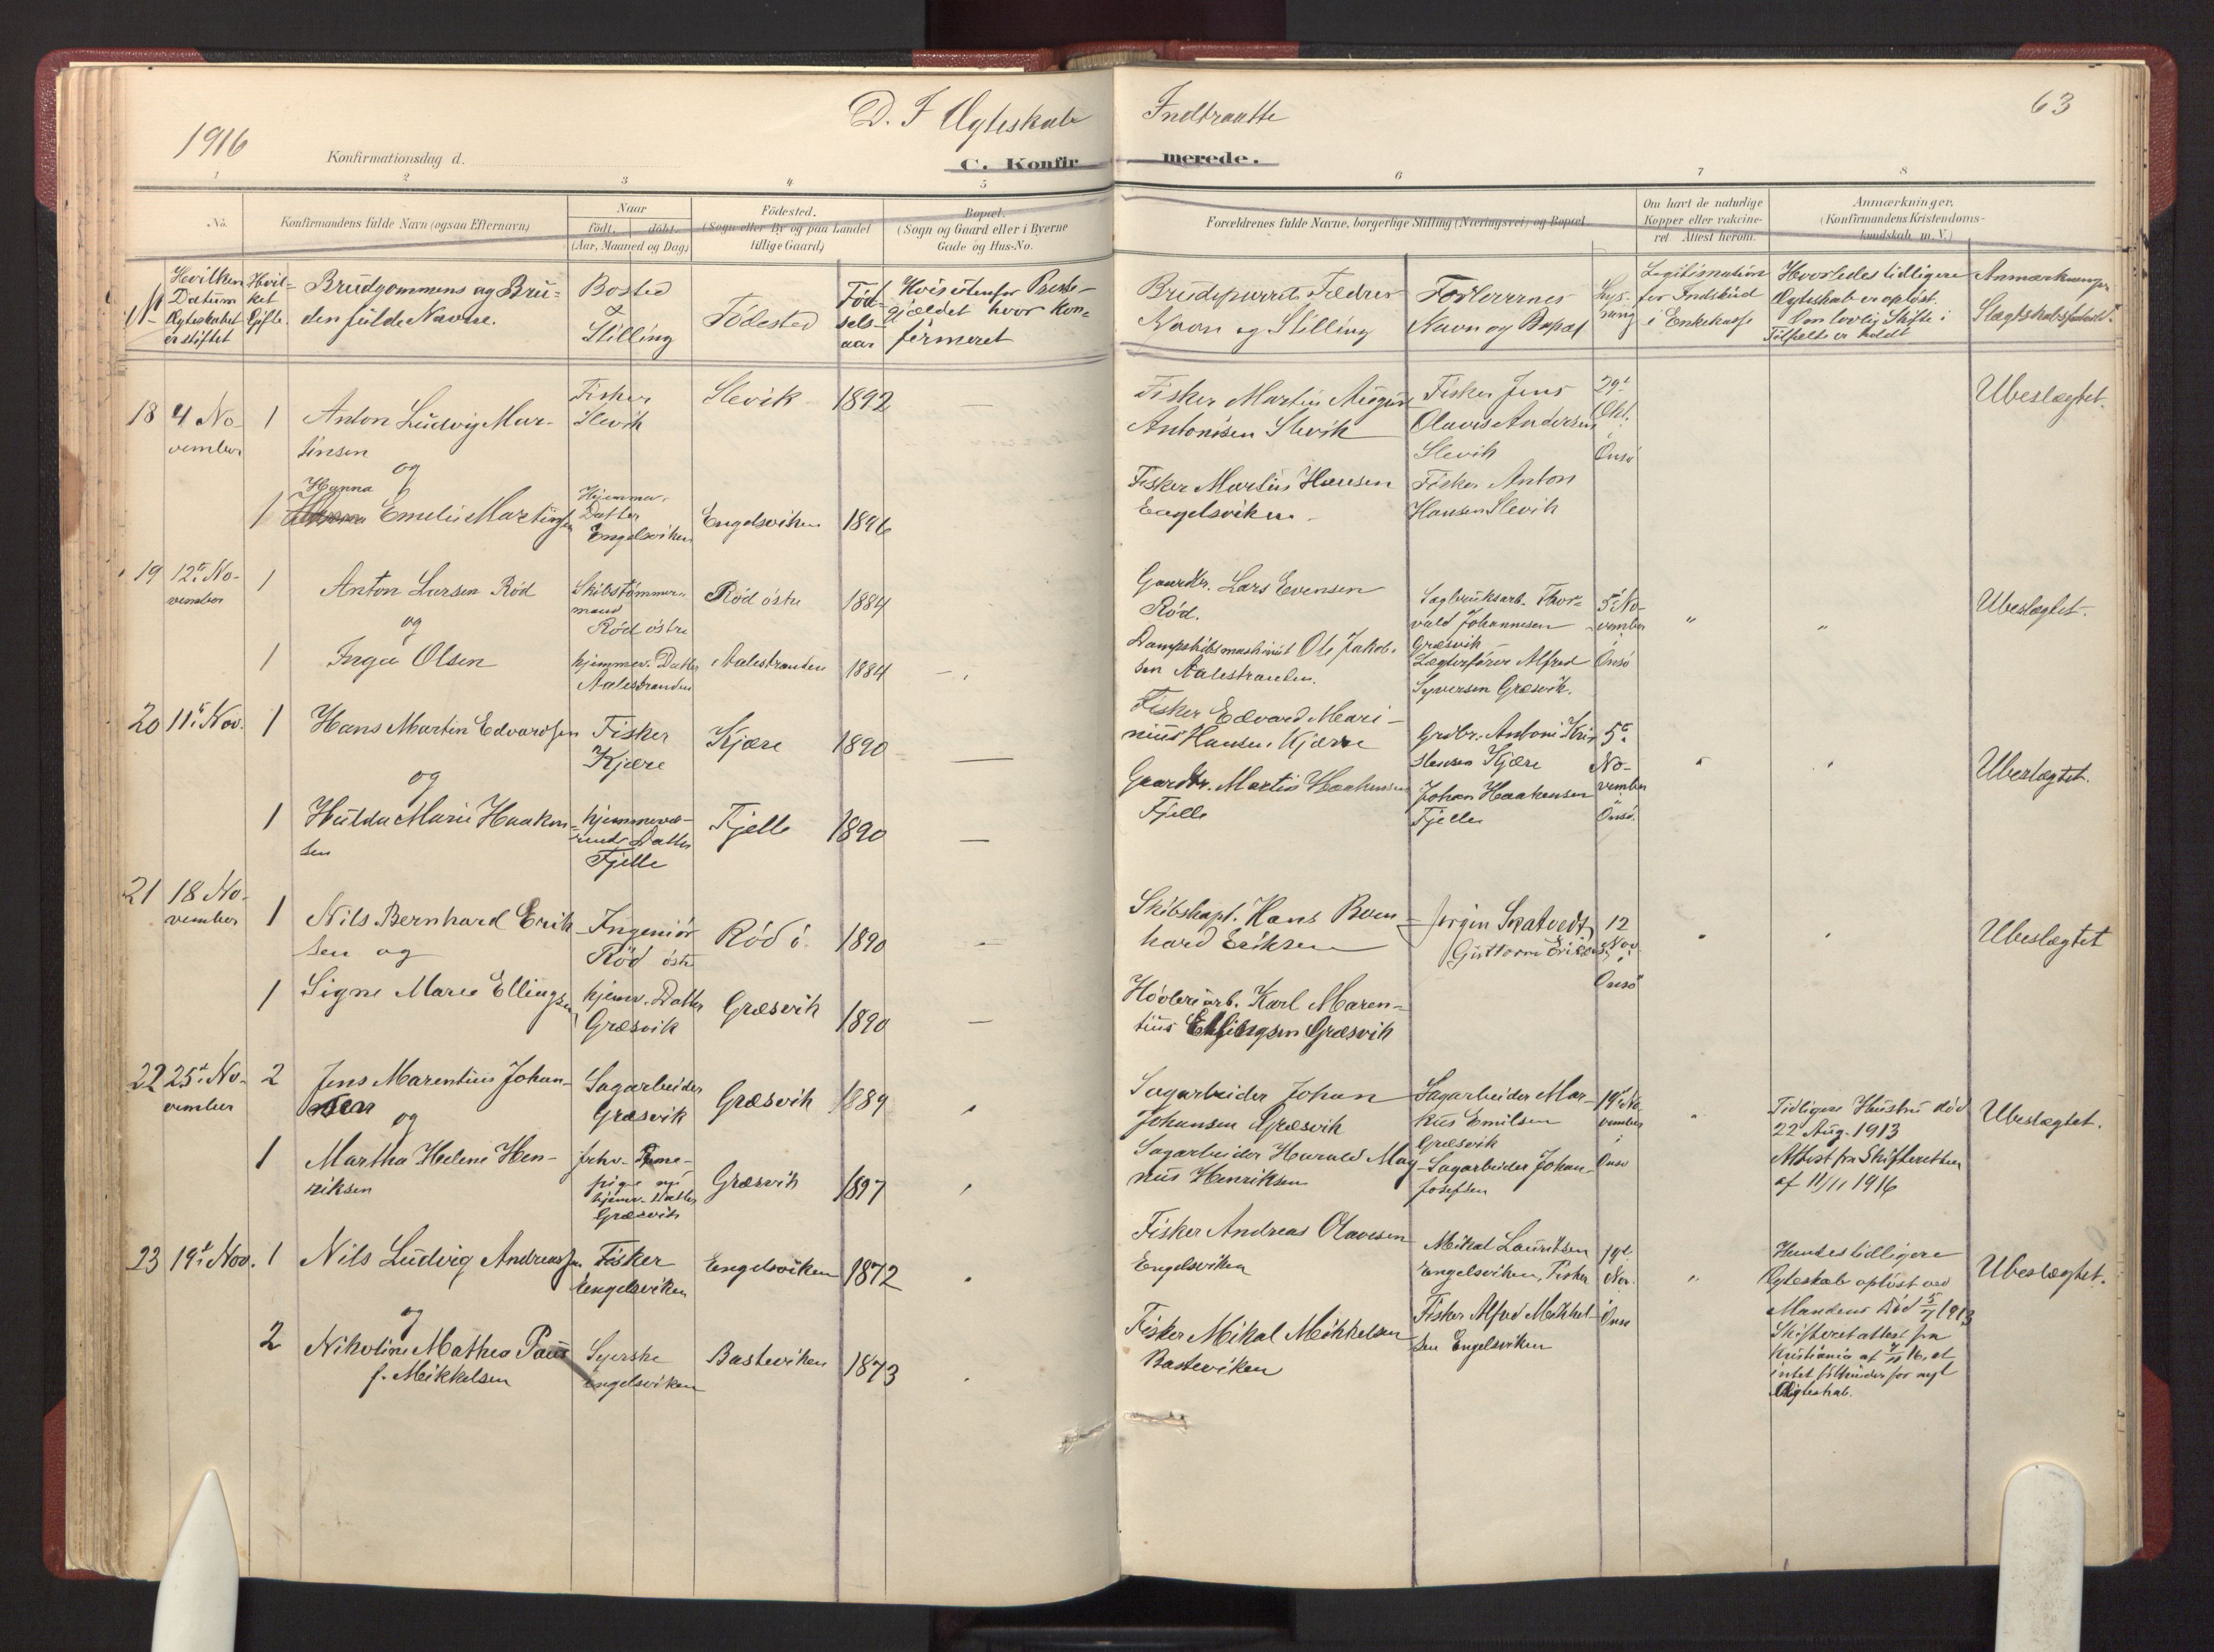 1916
D. I Ægteskab Indtraatte
63
Konfirmationsdag d.
C. Konfirmerede.
1 2 3 4 5 6 7 8
No.
Konfirmandens fulde Navn (ogsaa Efternavn)
Naar
født, døbt.
(Aar, Maaned og Dag)
Fødested.
(Sogn eller By og paa Landet
tillige Gaard)
Bopæl.
(Sogn og Gaard eller i Byerne
Gade og Hus-No.
Forældrenes fulde Navne, borgerlige Stilling (Næringsvei) og Bopæl
Om havt de naturlige
Kopper eller vakcine-
ret. Attest herom.
Anmærkninger.
(Konfirmandens Kristendoms-
kundskab m. V.)
№
Hvilken
Datum
Ægteskabet
er stiftet
Hvil-
ket
Gifte.
Brudgommens og Bru-
den fulde Navne.
Bosted
&
Stilling
Födested
Fød-
sels-
aar
Hvis utenfor Preste-
gjældet hvor kon-
firmeret
Brudeparrets Fædres
Navn og Stilling
Forlovernes
Navn og Bopæl
Lys-
ning
Legitimation
for Indskud
i Enkekasse
Hvorledes tidligere
Ægteskab er opløst.
Om lovlig Skifte i
Tilfælde er holdt
Anmærkninger
Slægtskabsforhold.
18
4 No-
vember
1
Anton Ludvig Mar-
tinsen
og
Fisker
Slevik
Slevik
1892
—
Fisker Martin August
Antonisen Slevik
Fisker Jens
Olaves Andersen
Slevik
29t
Okt.
i
Onsö
Ubeslægtet.
1
Hanna
Emelie Martinsen
Hjemmev.
Datter
Engelsviken
Engelsviken
1896
Fisker Martin Hansen
Engelsviken
Fisker Anton
Hansen Slevik
19
12te No-
vember
1
Anton Larsen Röd
og
Skibstömmer-
mand
Röd östre
Röd östre
1884
Gaardbr. Lars Evensen
Röd.
Sagbruksarb. Thor-
vald Johannesen
Græsvik
5t No-
vember
i
Onsö
"
"
Ubeslægtet.
1
Inga Olsen
hjemmev. Datter
Aalestranden
Aalestranden
1884
—
Dampskibsmaskinist Ole Jakob-
sen Aalestranden.
Lægterförer Alfred
Syversen Græsvik.
20
11te Nov.
1
Hans Martin Edvardsen
og
Fisker
Kjære
Kjære
1890
—
Fisker Edvard Mari-
nius Hansen Kjære
Grdbr. Antoni Kri-
stensen Kjære
5te
No-
vember
Onsö.
"
"
Ubeslægtet.
1
Hulda Marie Haaken-
sen
hjemmevæ-
rende Datter
Fjelle
Fjelle
1890
—
Gaardbr. Martin Haakensen
Fjelle
Johan Haakensen
Fjelle
21
18 No-
vember
1
Nils Bernhard Erik-
sen og
Ingeniör
Röd östr
Röd ö.
1890
—
Skibskapt. Hans Bern-
hard Eriksen
Jørgin Skatvedt,
Guttorm Eriksen
12
Nov.
i
Onsö
"
"
Ubeslægtet
1
Signe Marie Ellingsen
hjemv. Datter
Græsvik
Græsvik
1890
—
Hövleriarb. Karl Maren-
tius Ellingsen Græsvik
22
25t No-
vember
2
Jens Marentius Johan-
sen
og
Sagarbeider
Græsvik
Græsvik
1889
"
Sagarbeider Johan
Johansen Græsvik
Sagarbeider Mar-
kus Emilsen
Græsvik
19t No-
vember
i
Onsö
"
Tidligere Hustru död
22 Aug. 1913
Attest fra Skifteretten
af 11/11 1916
Ubeslægtet.
1
Martha Helene Hen-
riksen
pige nu
hjemv. Datter
Græsvik
Græsvik
1897
"
Sagarbeider Harald Mag-
nus Henriksen
Sagarbeider Johan
Josefsen
23
19t Nov.
1
Nils Ludvig Andreassen
og
Fisker
Engelsviken
Engelsviken
1872
"
Fisker Andreas Olavesen
Engelsviken
Mikal Lauritsen
Engelsviken, Fisker
19t
Nov.
i
Onsö
"
Hendes tidligere
Ægteskab oplöst ved
Mandens Död 5/7 1913
Skifteret attest fra
Kristiania af 7/11 16, at
intet til hinder for nyt
Ægteskab.
Ubeslægtet.
2
Nikoline Mathea Paus
f. Mikkelsen
Syerske
Engelsviken
Basteviken
1873
"
Fisker Mikal Mikkelsen
Basteviken
Fisker Alfred Mikkel-
sen Engelsviken